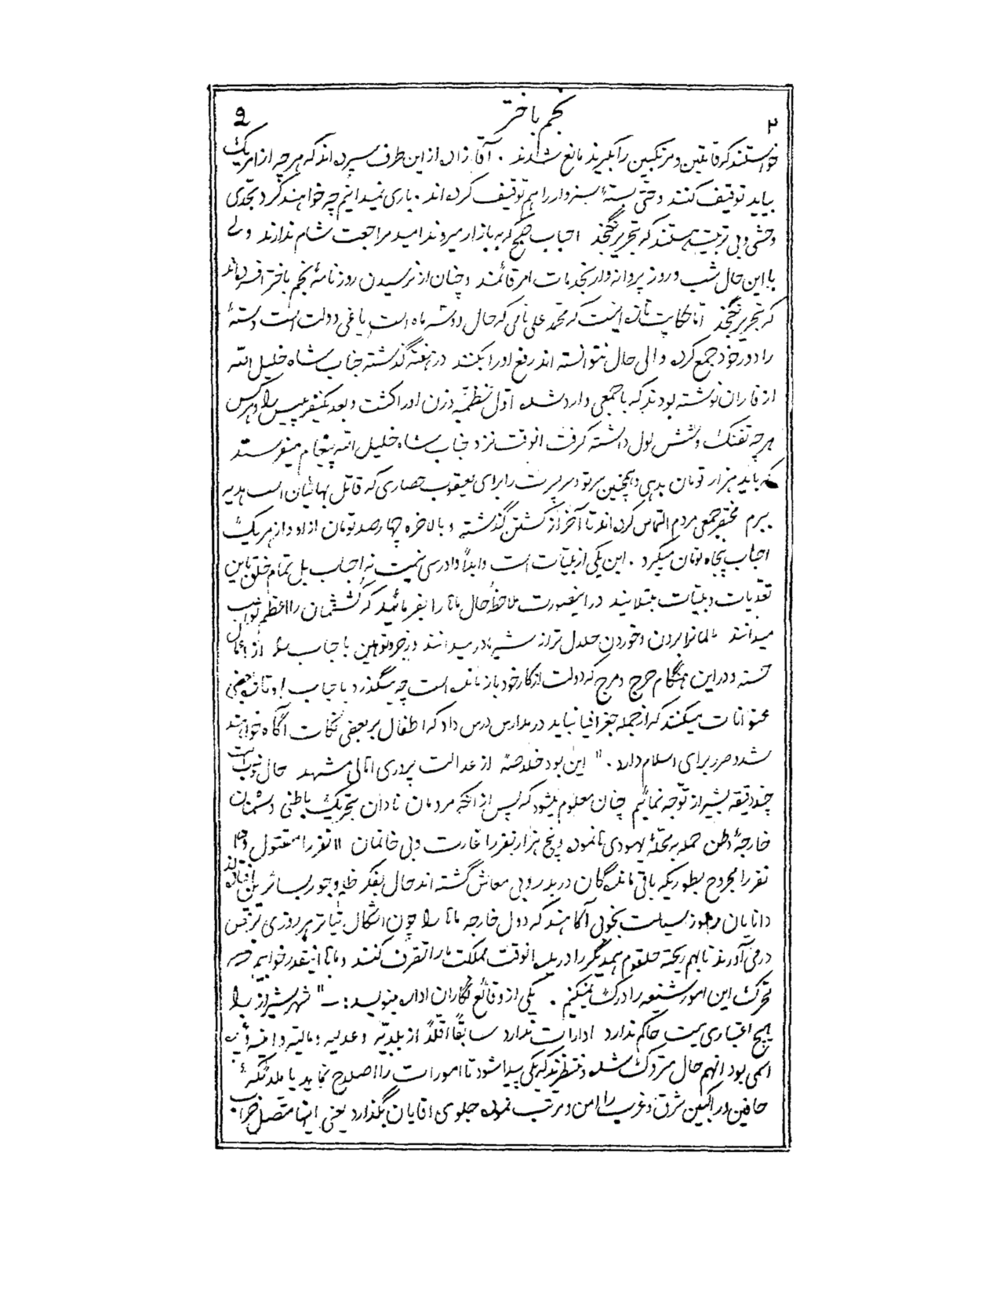 ۲ نجم باختر 9
خواستند که قاتلین و مرتکبین را بگیرند مانع شدند . آقازاده از این طرف سپرده اند که هر چه از امریک
بیاید توقیف کنند و حتی بستهٔ سبزوار را هم توقیف کرده اند . باری نمیدانیم چه خواهند کرد بقدری
وحشی و بی تربیت هستند که بتحریر نگنجد احباب صبح که به بازار میروند امید مراجعت شام ندارند ولی
با این حال شب و روز پروانه وار بخدمات امر قائمند و چنان از نرسیدن روزنامهٔ نجم باختر افسرده اند
که بتحریر نگنجد اما حکایت تازه اینست که محمد علی نامی که حال دو سه ماه است یاغی دولت است دستهٔ
را دور خود جمع کرده و الی حال نتوانسته اند رفع او را بکنند در هفتهٔ گذشته جناب شاه خلیل الله
از فاران نوشته بودند که با جمعی وارد شده اول نظمیه و زن او را کشت و بعد یکنفر پلیس را و هر کس
هر چه تفنگ و شش لول داشته گرفت انوقت نزد جناب شاه خلیل الله پیغام میفرستد
که باید هزار تومان بدهی و همچنین سر تو و سر پسرت را برای یعقوب حصاری که قاتل بهائیان است هدیه
ببرم مختصر جمعی مردم التماس کرده اند تا آخر از کشتن گذشته و بالاخره چهار صد تومان از او و از هر یک
احباب پنجاه تومان میگیرد . این یکی از بلیّات است و ابداً دادرسی نیست نه احباب بل تمام خلق باین
تعدیات و بلیات مبتلایند در اینصورت ملاحظه حال ما را بفرمائید که کشتمان را اعظم ثواب
میدانند مالمانرا بردن و خوردن حلال تر از شیر مادر میدانند و زجر و توهین با جناب از اعمال
حسنه و در این هنگام هرج و مرج که دولت از کار خود باز مانده است چه میگذرد با جناب اوقات بعضی
عنوانات میکنند که از جمله جغرافیا نباید در مدارس درس داد که اطفال بر بعضی نکات آگاه خواهند
شد و ضرر برای اسلام دارد . " این بود خلاصه از عدالت پروری اهالی مشهد حال
چند دقیقه بشیراز توجه نمائیم چنان معلوم میشود که پس از آنکه مردمان نادان بتحریک باطنی دشمنان
خارجهٔ وطن حمله بر محلهٔ یهودی ها نموده و پنج هزار نفر را غارت و بی خانمان ۱۱ نفر را مقتول و
نفر را مجروح بطوریکه باقی ماندگان دربدر و بی معاش گشته اند حال بفکر ظلم و جور بسائرین افتاده اند
دانایان رموز سیاست بخوبی آگاهند که دول خارجه ما را چون اشکال تیاتر هر روزی برقص
در می آورند تا بهم ریخته حلقوم همدیگر را دریده انوقت مملکت ما را تصرف کنند و ما اینقدر خوابیم که
تحرک این امور شنیعه را درک نمیکنیم . یکی از وقائع نگاران اداره مینویسد : — " شهر شیراز را
هیچ اعتباری نیست حاکم ندارد ادارات ندارد سابقاً اقلاً از بلدیّه و عدلیه و مالیه و
اسمی بود آنهم حال متروک شده و منتظرند که یکی پیدا شود تا امورات را اصلاح نماید یا ملائکهٔ
حافین در اکسین شرق و غرب را امن و مرتب نموده جلوی اقایان بگذارد یعنی اینها متصل خراب